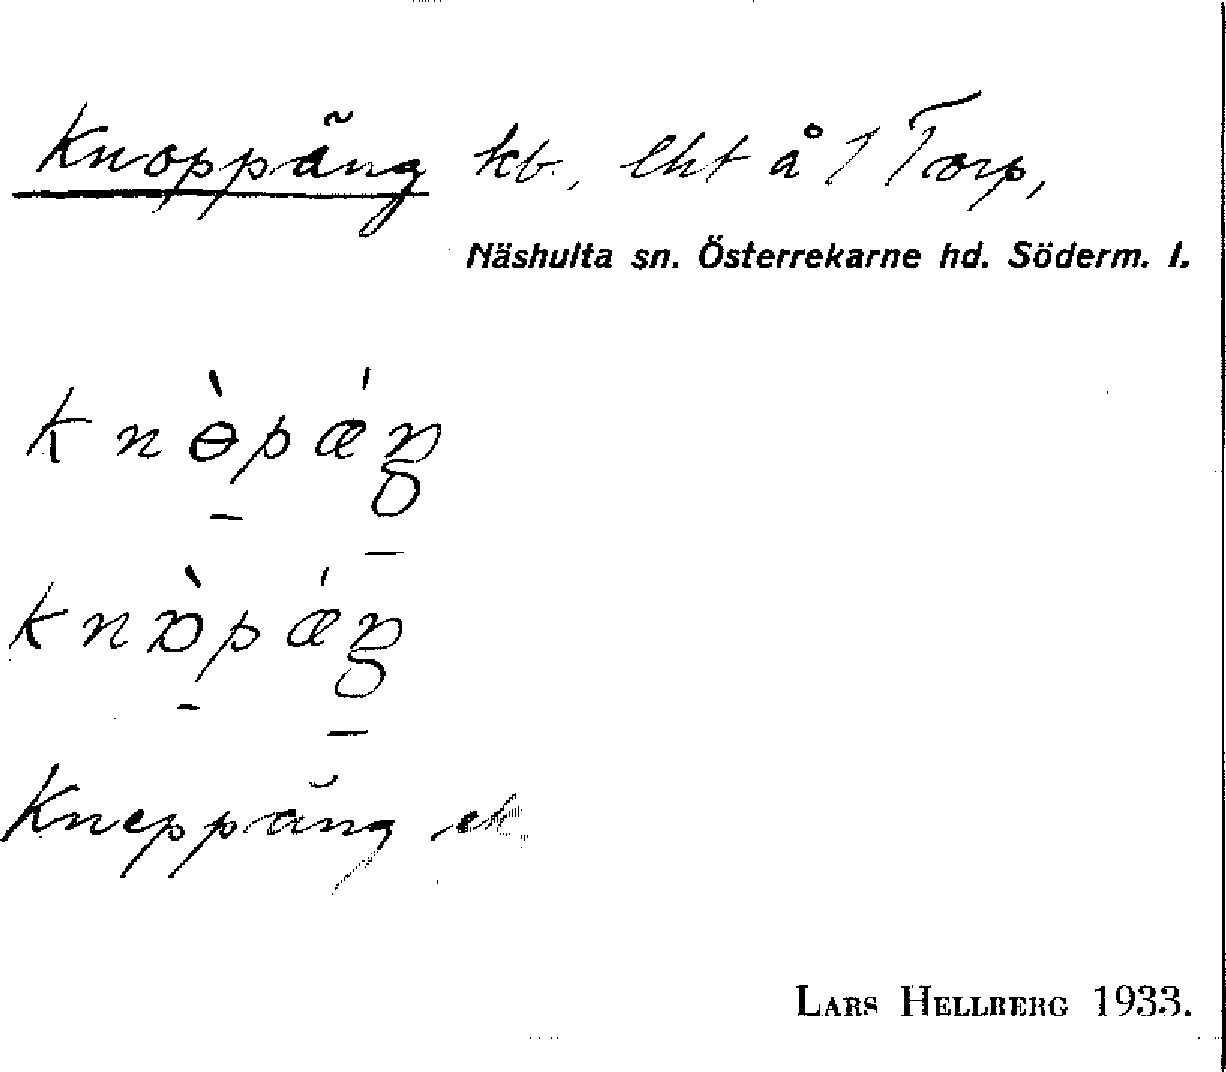 Knoppäng kb., lht å 1 Torp,
Näshulta sn. Österrekarne hd. Söderm. l.
Kneppäng ek.
LARS HELLBERG 1933.